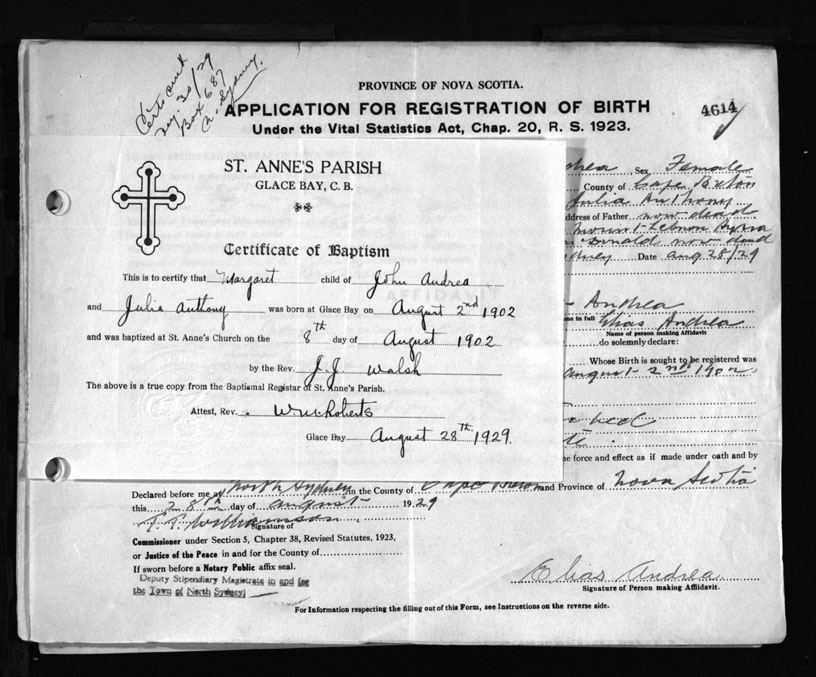 Certs sent
Aug. 30/29
Box 687
N. Sydney.
PROVINCE OF NOVA SCOTIA.
APPLICATION FOR REGISTRATION OF BIRTH
Under the Vital Statistics Act, Chap. 20, R. S. 1923.
4614
ST. ANNE'S PARISH
GLACE BAY, C. B.
Certificate of Baptism
This is to certify that Margaret child of John Andrea
and Julia Anthony was born at Glace Bay on August 2nd 1902
and was baptized at St. Anne's Church on the 8th day of August 1902
by the Rev. J. J. Walsh
The above is a true copy from the Baptismal Registar of St. Anne's Parish.
Attest, Rev. Wm. Roberts
Glace Bay August 28th, 1929.
Sex Female
County of Cape Breton
Julia Anthony
ddress of Father now dead
Date aug 28/29
Andrea
me in full Elias Andrea
Name of person making Affidavit
do solemnly declare:
Whose Birth is sought to be registered was
august 2nd 1902.
me force and effect as if made under oath and by
Declared before me at North Sydney in the County of Cape Breton and Province of Nova Scotia
this 28th day of august 1929
Signature of
Commissioner under Section 5, Chapter 38, Revised Statutes, 1923,
or Justice of the Peace in and for the County of
If sworn before a Notary Public affix seal.
Deputy Stipendiary Magistrate in and for
the Town of North Sydney
Elias Andrea
Signature of Person making Affidavit.
For Information respecting the filling out of this Form, see Instructions on the reverse side.